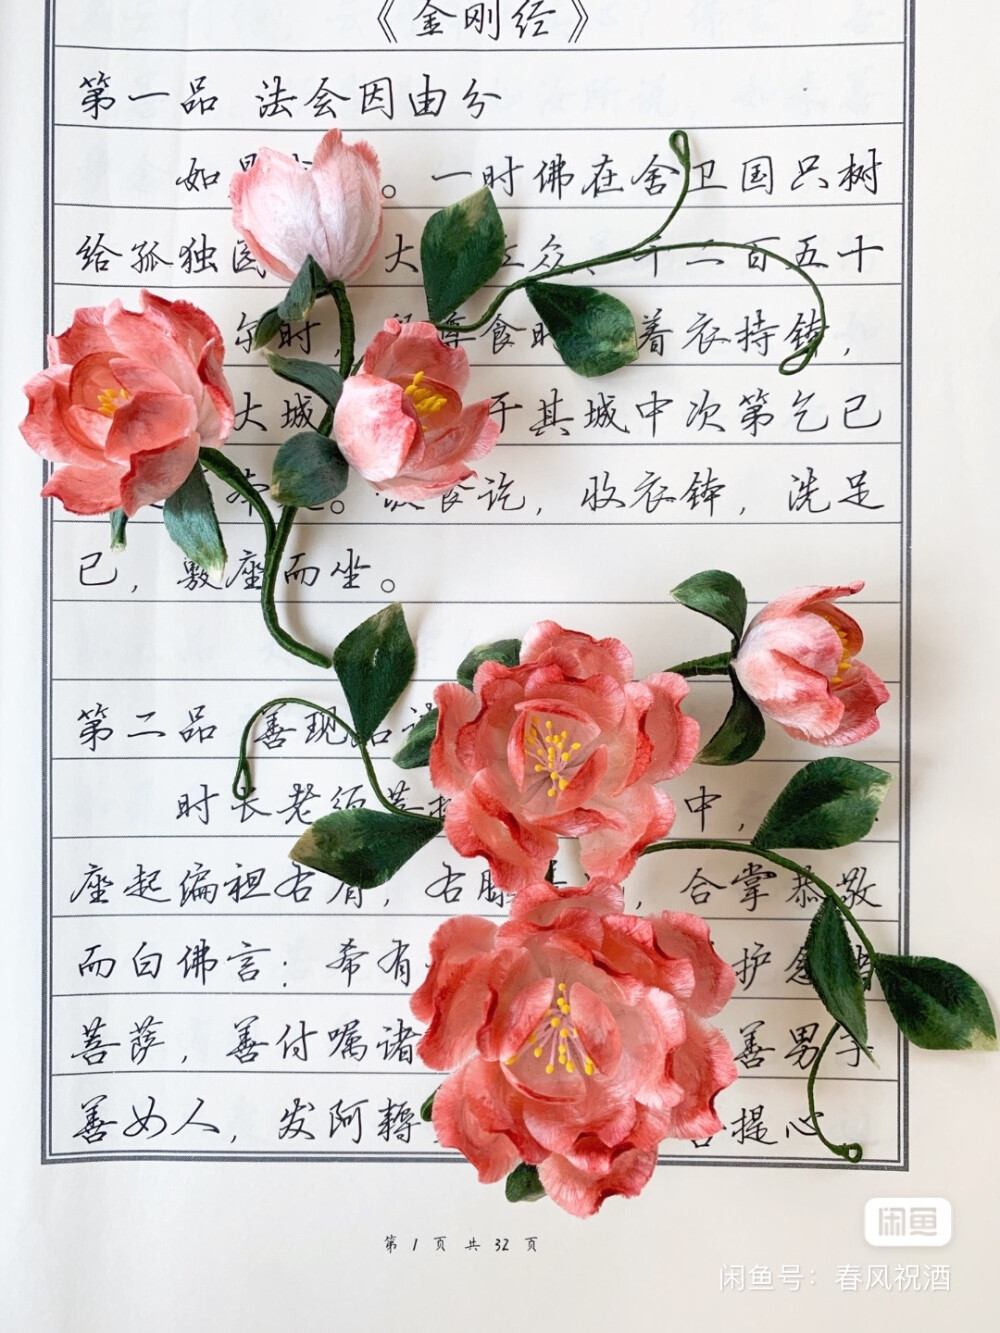 《金刚经》
第一品 法会因由分
如是 。一时佛在舍卫国只树
给孤独 大 众 千二百五十
尔时， 尊食时 着衣持钵，
大城 于其城中次第乞已
本 。 食讫，收衣钵，洗足
已，敷座而坐。
第二品 善现启
时长老须菩 中，
座起偏袒右肩，右膝 ，合掌恭敬
而白佛言：希有 护念诸
菩萨，善付嘱诸 善男子
善女人，发阿耨 提心
第 1 页 共 32 页
闲鱼
闲鱼号：春风祝酒